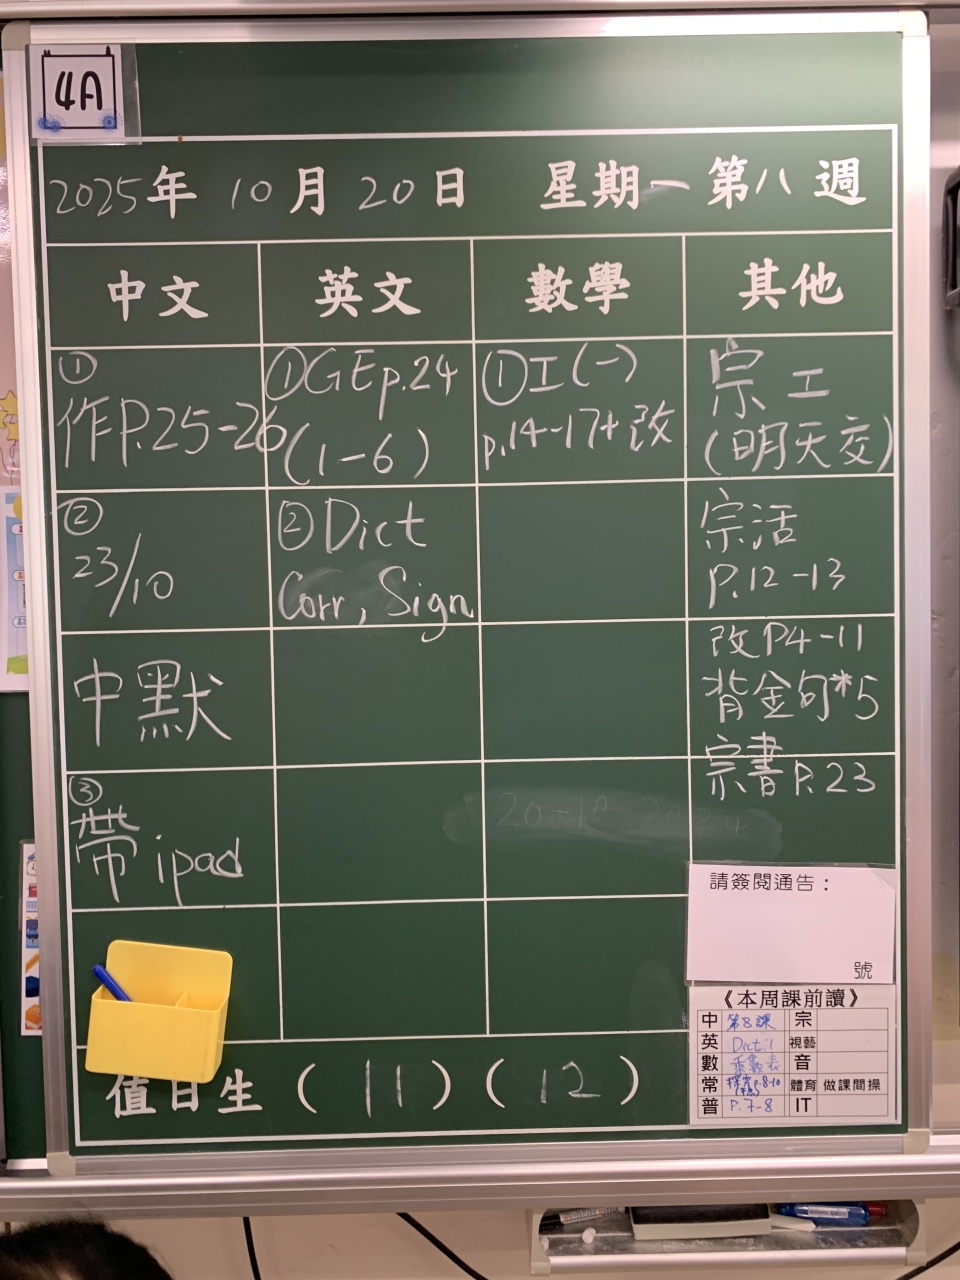 4A
2025年 10月20日 星期一 第八週
中文 英文 數學 其他
①
作P.25-26
②
23/10
中默
③
帶 ipad
①GE p.24
(1-6)
②Dict
Corr, Sign
①工(一)
p.14-17+改
宗工
(明天交)
宗活
P.12-13
改P4-11
背金句*5
宗書P.23
20-10-2024
請簽閱通告：
號
《本周課前讀》
中 第8課 宗
英 Dict:1 視藝
數 乘數表 音
常 P.8-10 體育 做課間操
普 P.7-8 IT
值日生 (11) (12)